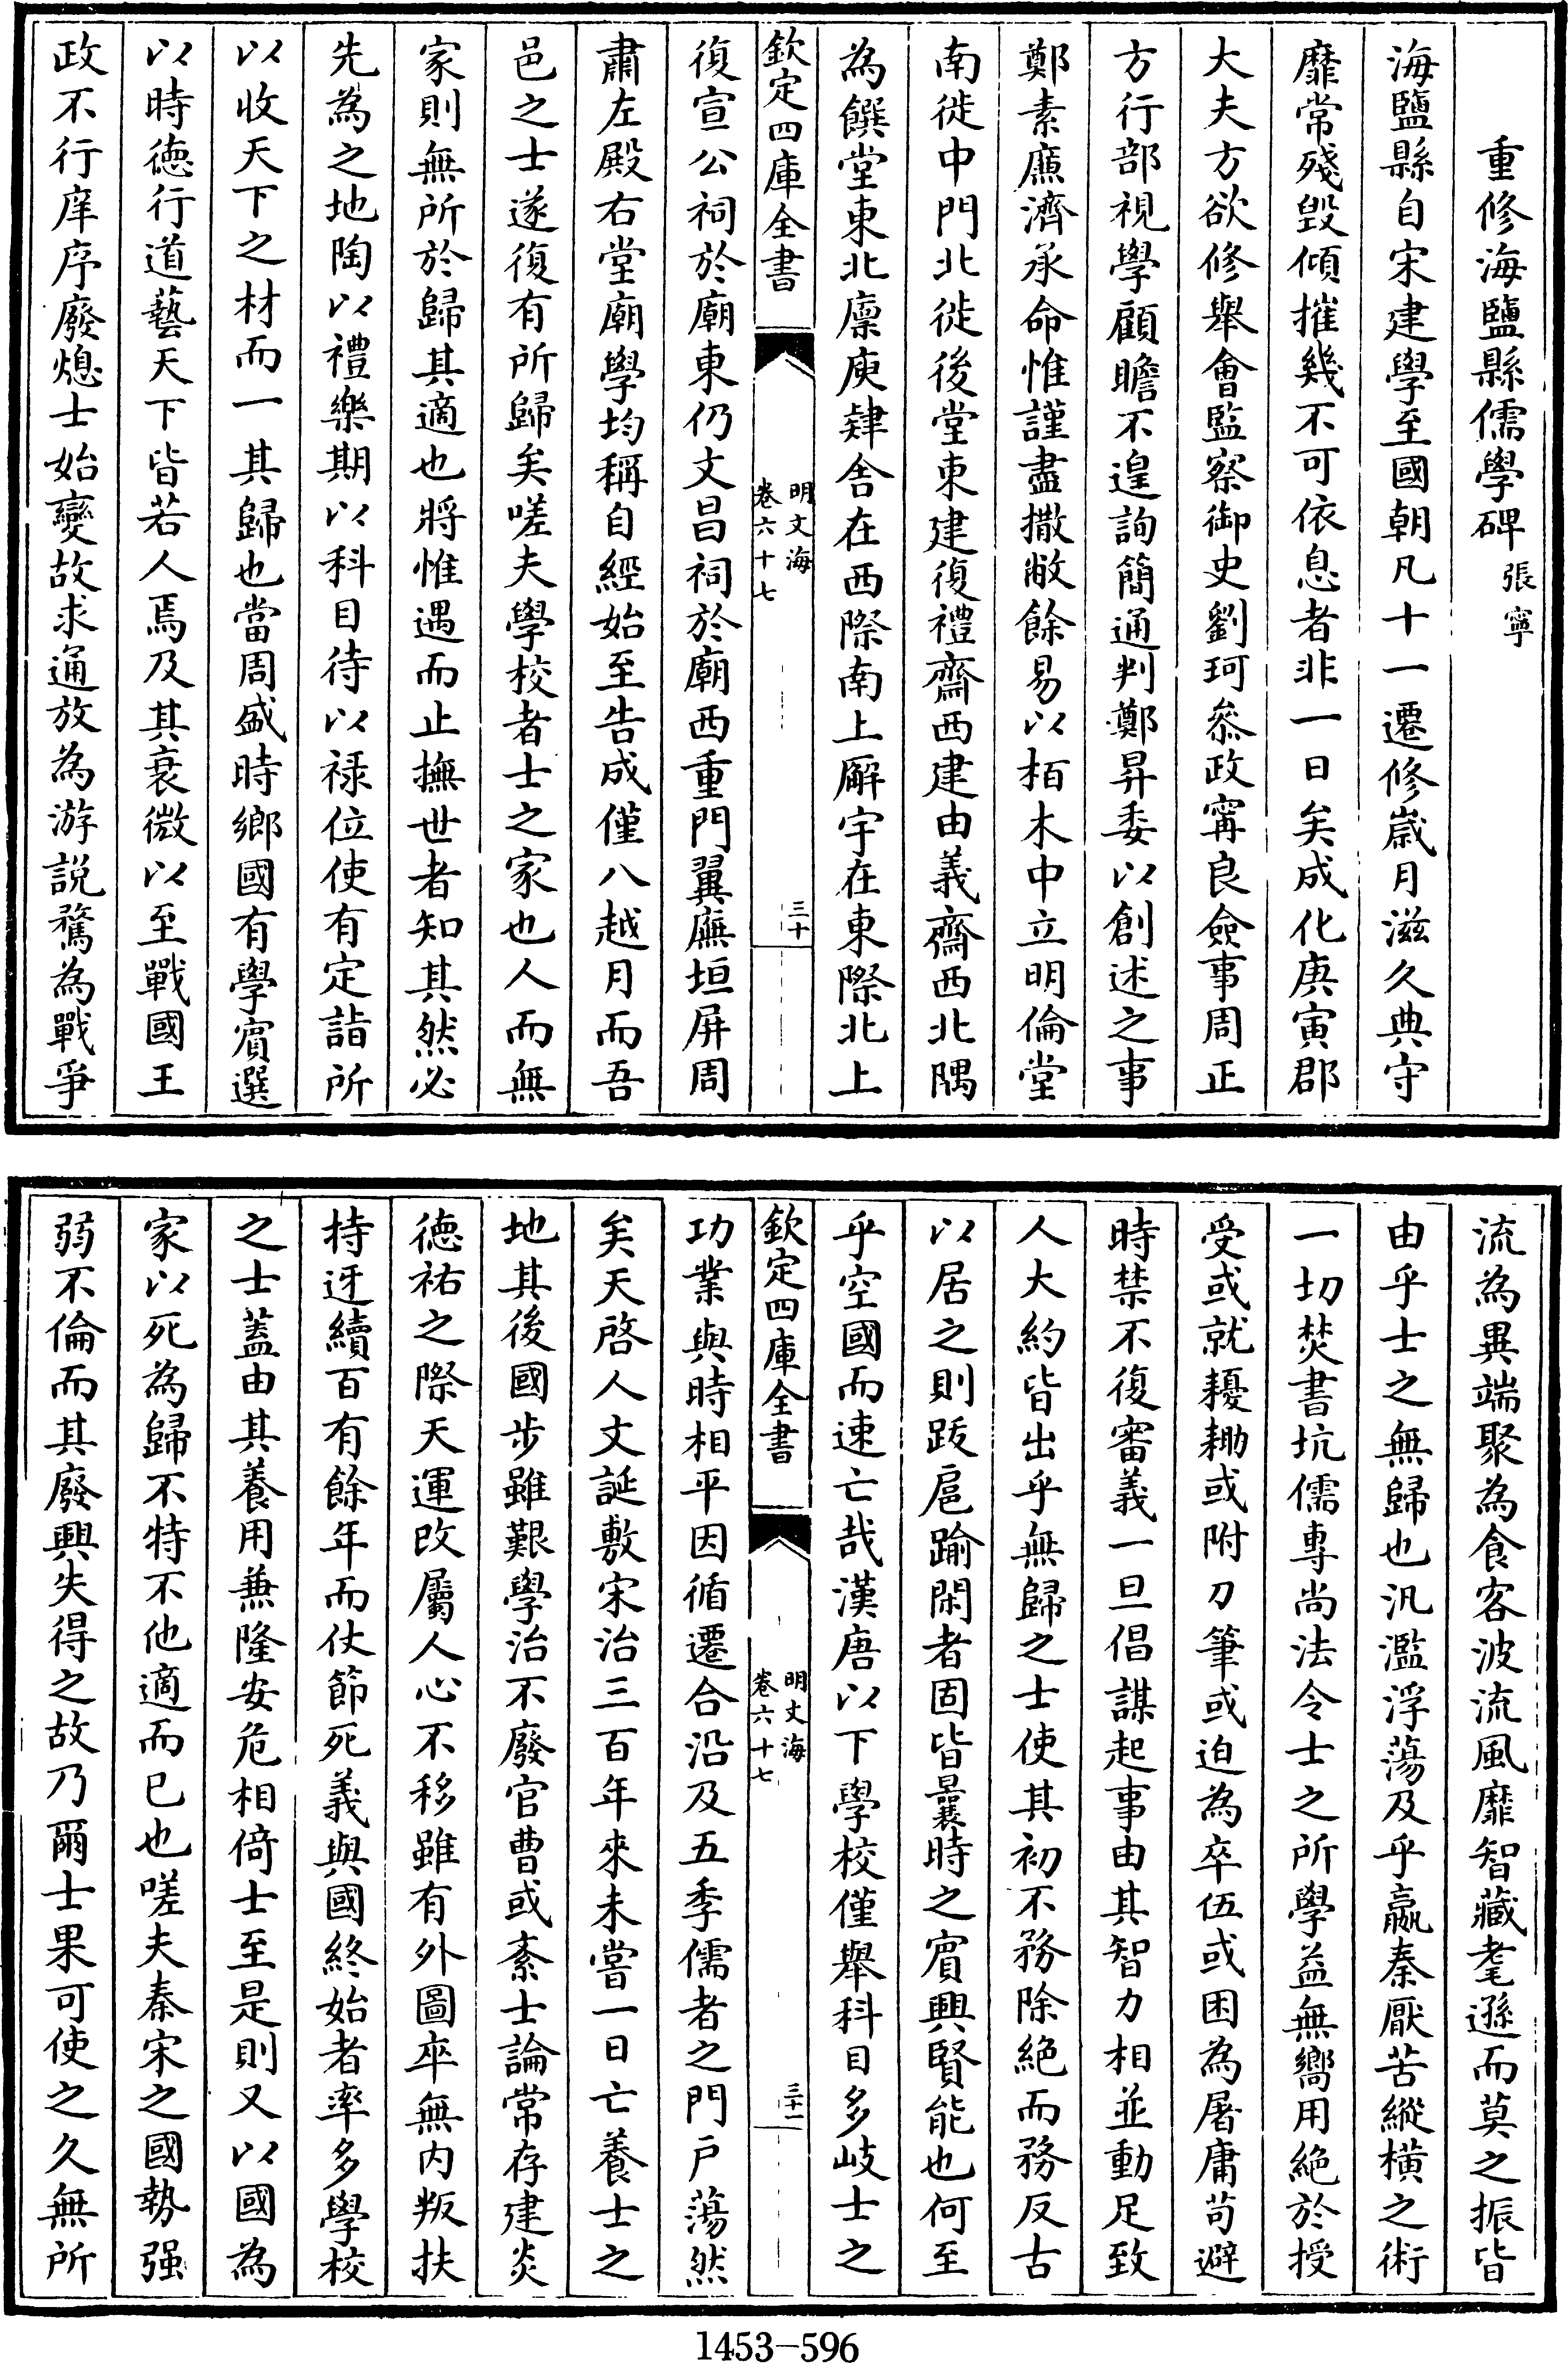 重修海鹽縣儒學碑張寧
海鹽縣自宋建學至國朝凡十一遷修嵗月滋久典守
靡常殘毀傾摧幾不可依息者非一日矣成化庚寅郡
大夫方欲修舉會監察御史劉珂叅政甯良僉事周正
方行部視學顧瞻不遑詢簡通判鄭昇委以創述之事
鄭素廉濟承命惟謹盡撤敝餘易以栢木中立明倫堂
南徙中門北徙後堂東建復禮齋西建由義齋西北隅
為饌堂東北廩庾肄舎在西際南上廨宇在東際北上
欽定四庫全書
明文海
卷六十七
三十
復宣公祠於廟東仍文昌祠於廟西重門翼廡垣屏周
肅左殿右堂廟學均稱自經始至告成僅八越月而吾
邑之士遂復有所歸矣嗟夫學校者士之家也人而無
家則無所於歸其適也將惟遇而止撫世者知其然必
先為之地陶以禮樂期以科目待以禄位使有定詣所
以收天下之材而一其歸也當周盛時鄉國有學賓選
以時徳行道藝天下皆若人焉及其衰微以至戰國王
政不行庠序廢熄士始變故求通放為游説騖為戰爭
流為異端聚為食客波流風靡智藏耄遜而莫之振皆
由乎士之無歸也汎濫浮蕩及乎嬴秦厭苦縱横之術
一切焚書坑儒專尚法令士之所學益無嚮用絶於授
受或就耰耡或附刀筆或迫為卒伍或困為屠庸苟避
時禁不復審義一旦倡謀起事由其智力相並動足致
人大約皆出乎無歸之士使其初不務除絶而務反古
以居之則跋扈踰閑者固皆曩時之賓興賢能也何至
乎空國而速亡哉漢唐以下學校僅舉科目多岐士之
欽定四庫全書
明文海
卷六十七
三十一
功業與時相平因循遷合沿及五季儒者之門戸蕩然
矣天啓人文誕敷宋治三百年來未嘗一日亡養士之
地其後國步雖艱學治不廢官曹或紊士論常存建炎
徳祐之際天運改屬人心不移雖有外圖卒無内叛扶
持迓續百有餘年而仗節死義與國終始者率多學校
之士蓋由其養用兼隆安危相倚士至是則又以國為
家以死為歸不特不他適而已也嗟夫秦宋之國勢强
弱不倫而其廢興失得之故乃爾士果可使之久無所
1453-596